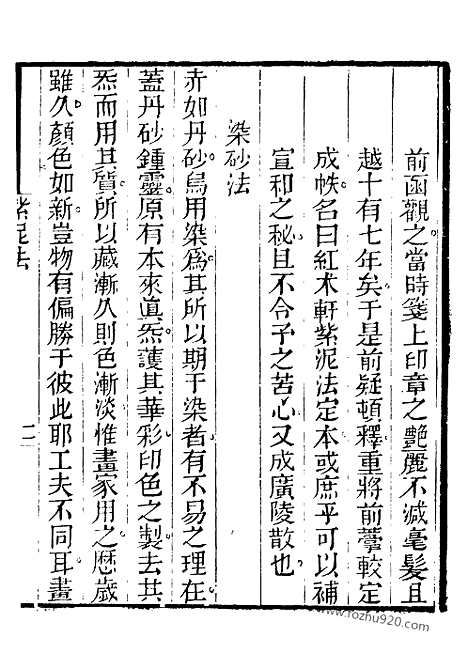 前函觀之當時箋上印章之艷麗不減毫髮且
越十有七年矣于是前疑頓釋重將前藳較定
成帙名曰紅朮軒紫泥法定本或庶乎可以補
宣和之秘且不令予之苦心又成廣陵散也
染砂法
赤如丹砂烏用染為其所以期于染者有不易之理在
蓋丹砂鍾靈原有本來真炁護其華彩印色之製去其
炁而用其質所以藏漸久則色漸淡惟畫家用之歷歲
雖久顏色如新豈物有偏勝于彼此耶工夫不同耳畫
紫泥法 二
www.fozhu920.com